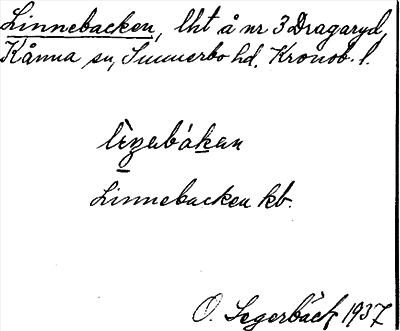 Linnebacken, lht å nr 3 Dragaryd,
Kånna sn, Sunnerbo hd. Kronob. l.
Linnebacken kb.
O. Segerbäck 1937